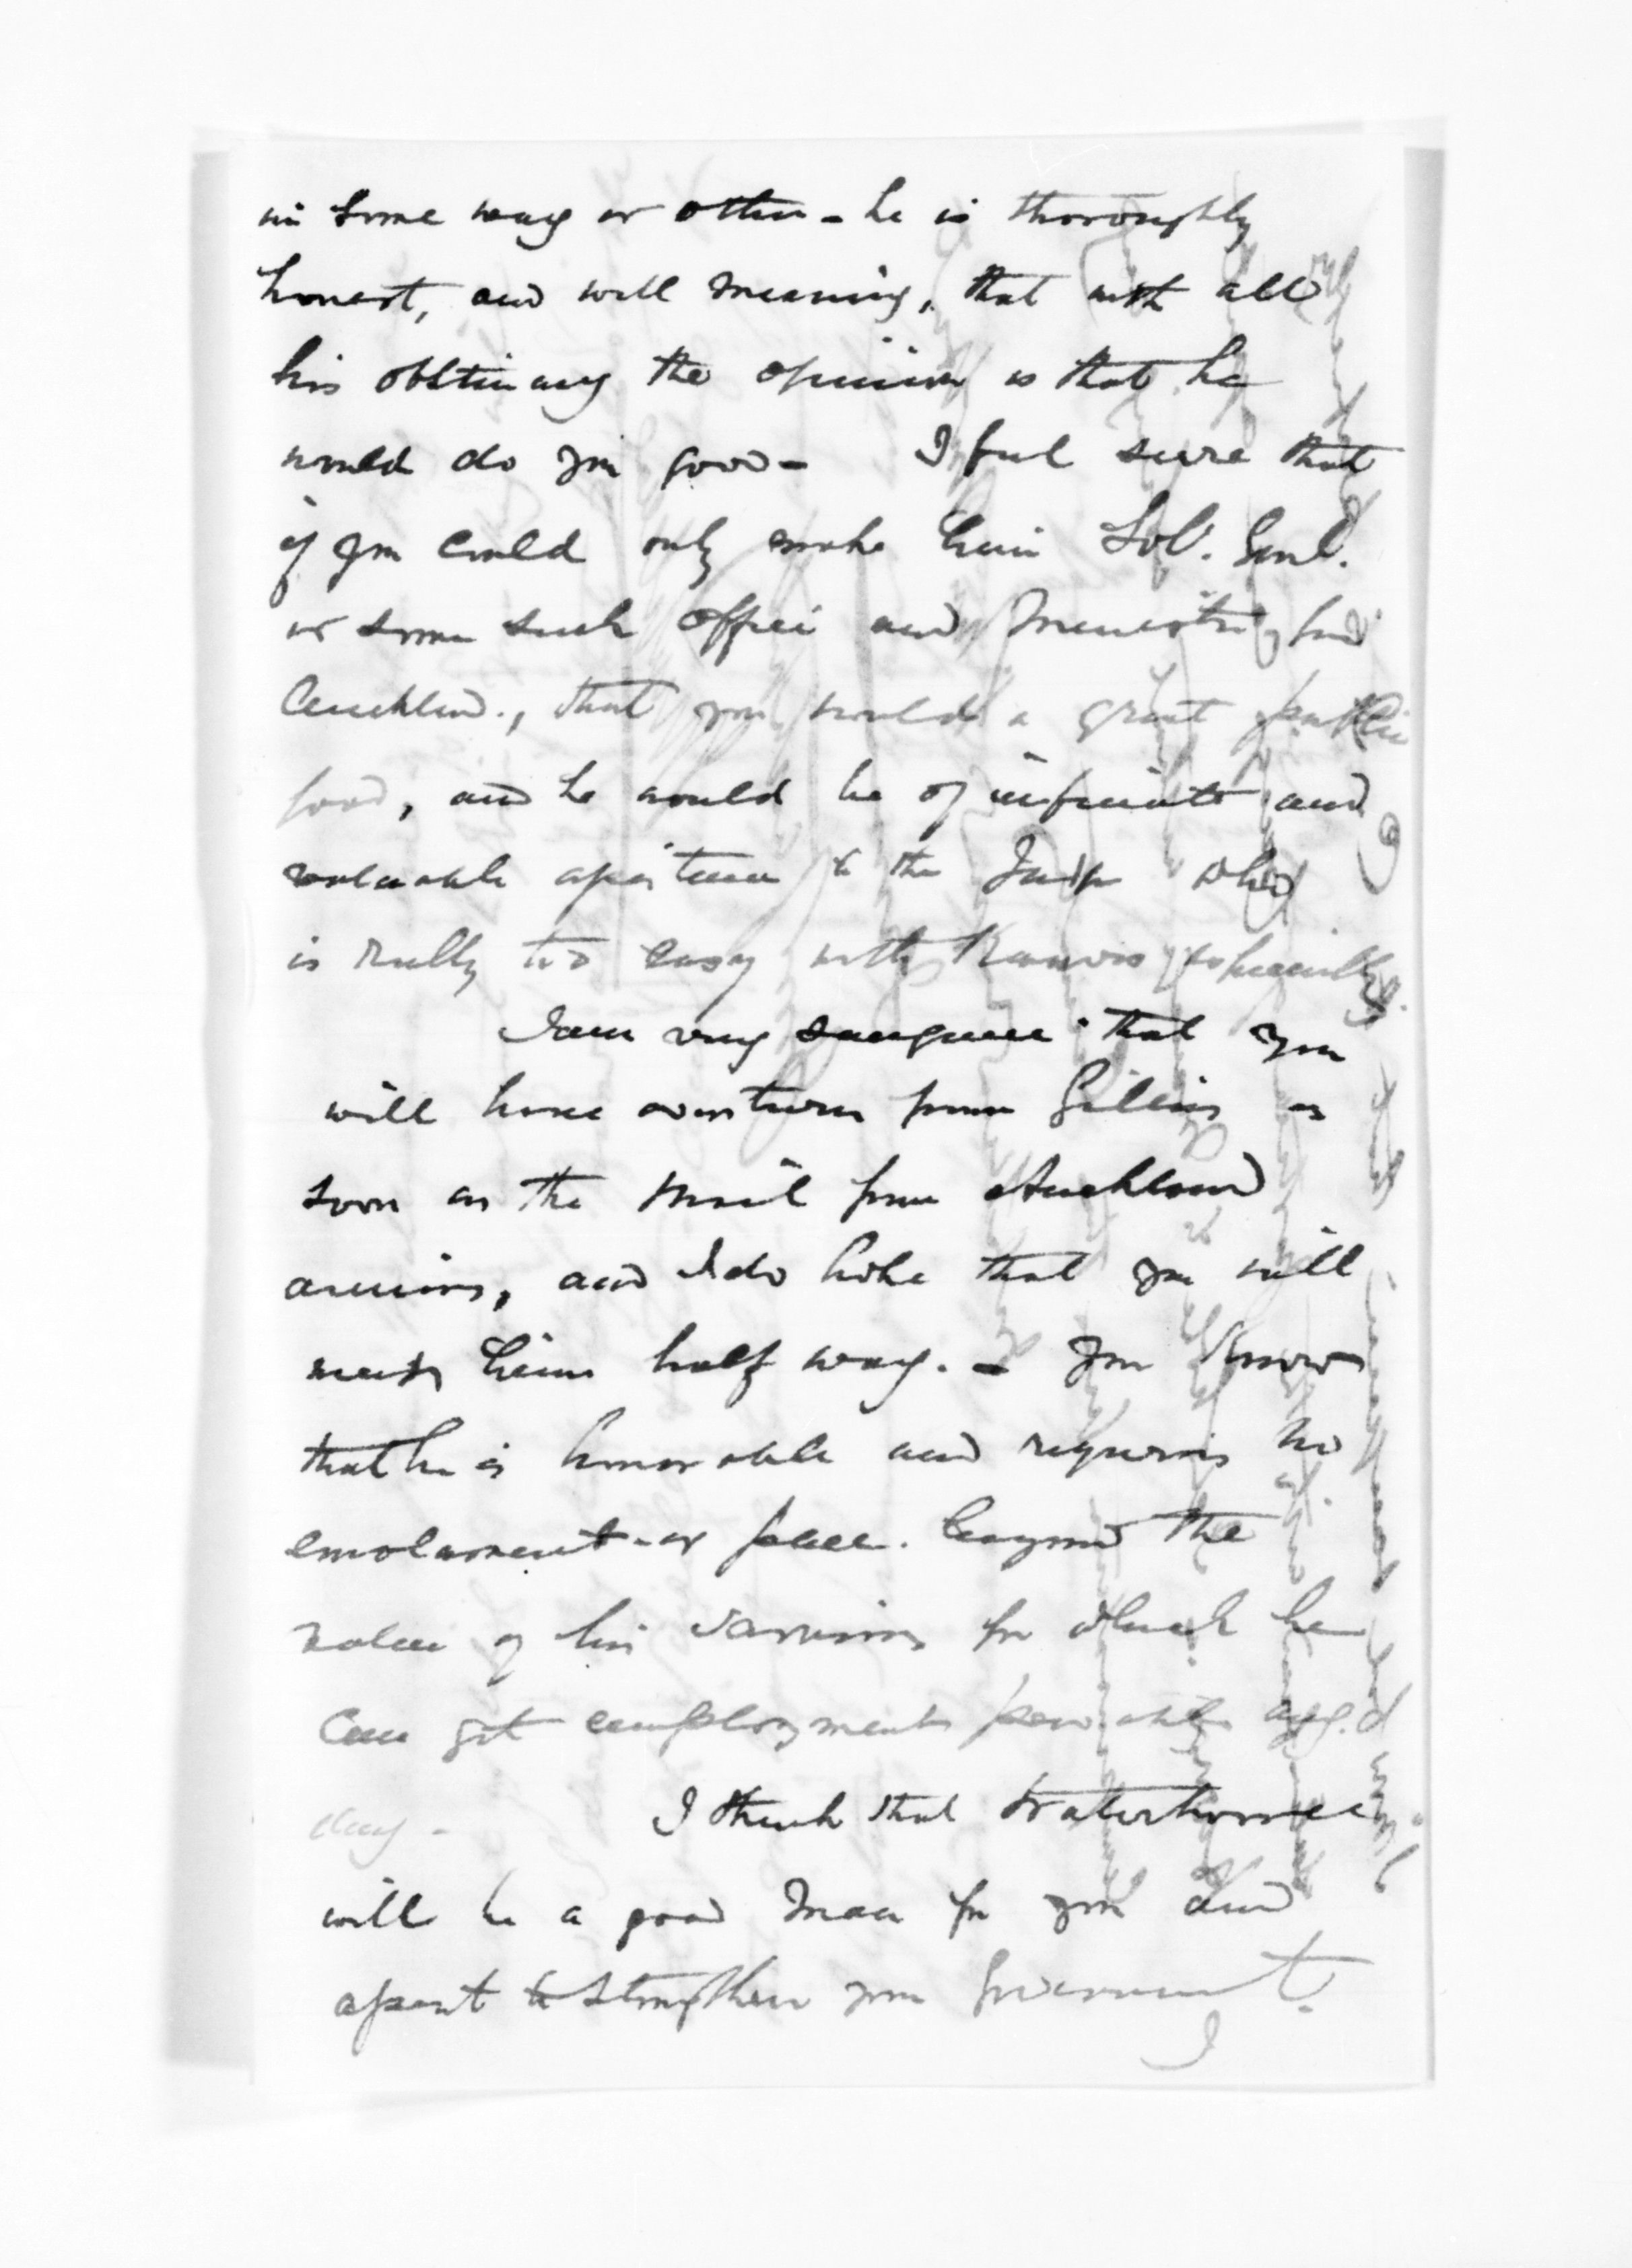 in some way or other - he is thoroughly
honest, and well meaning, that with all
his obstinacy the opinion is that he
would do you good - I feel sure that
if you could only make him Sol. Genl.
or some such office and Minister for
Auckland., that you would a great public
good, and he would be of infinite and
valuable assistance to the Judge who
is really too easy with Runs especially.
I am very sanguine that you
will have overtures from Gillies as
soon as the Mail from Auckland
arrives, and I do hope that you will
meet him half way. - You know
that he is honorable and requires no
emolument or place. beyond the
value of his services for which he
can get employment favorable any
day - I think that Waterhouse
will be a good man for you and
assist to strengthen your Government.
I